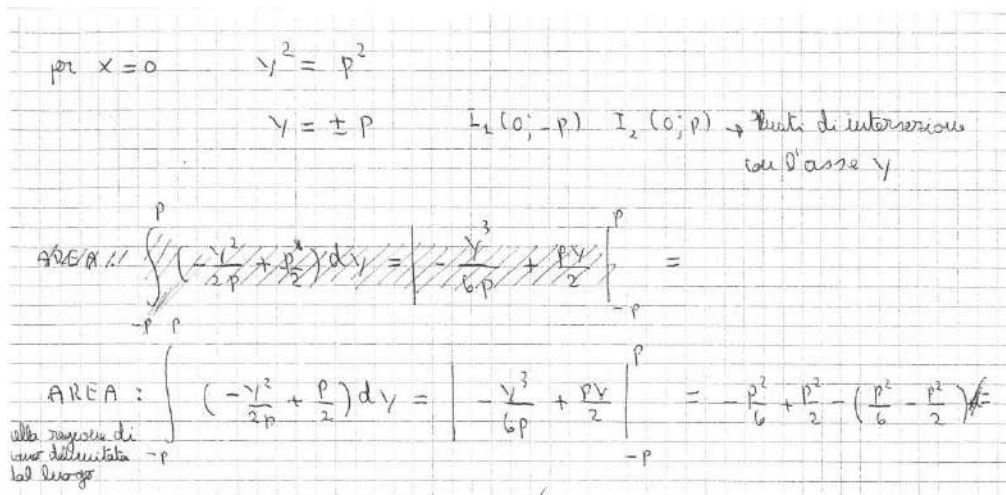 per x = 0 y² = p²
y = ± p I₁ (0; -p) I₂ (0; p) → Punti di intersezione
con l'asse y
AREA: ∫_{-p}^{p} (-y²/2p + p/2) dy = | -y³/6p + py/2 |_{-p}^{p} =
AREA: ∫_{-p}^{p} (-y²/2p + p/2) dy = | -y³/6p + py/2 |_{-p}^{p} = -p²/6 + p²/2 - (p²/6 - p²/2) =
della regione di
delimitata
dal luogo